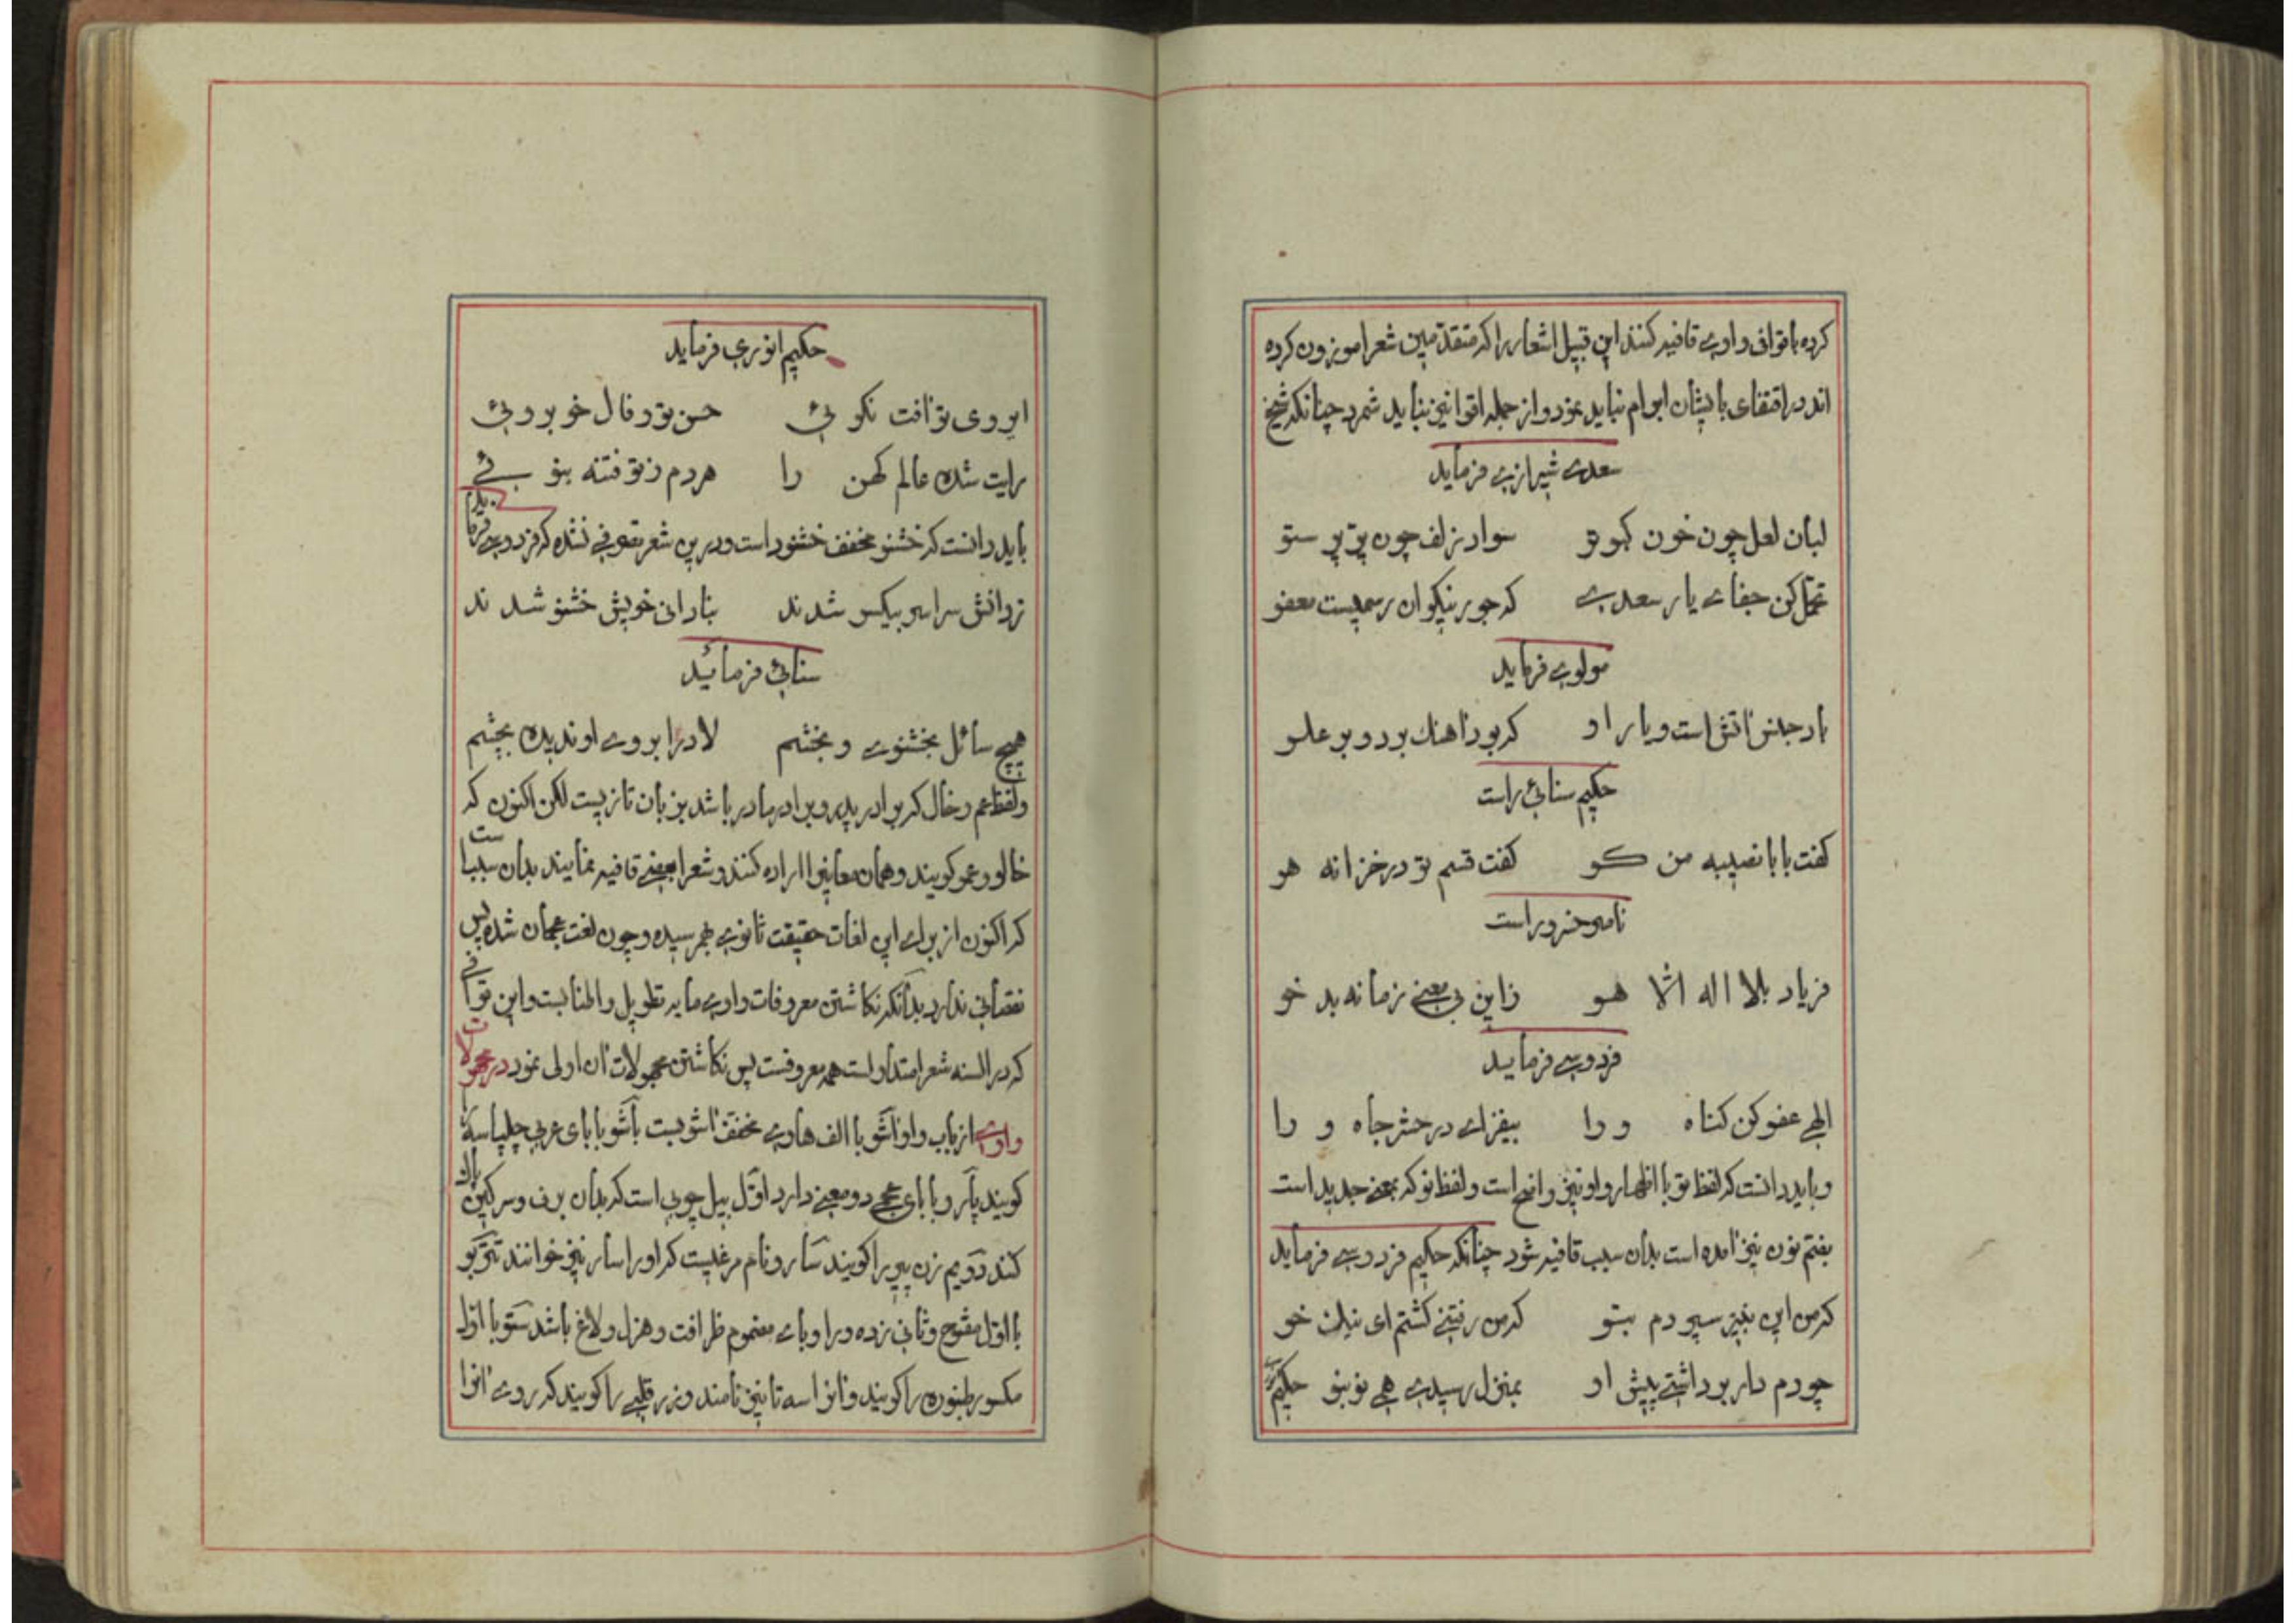 کرده باقوافی واوی قافیه کنند این قبیل اشعار را که متقدمین شعرا موزون کرده
اند در اقتفای بایشان ابرام نباید نمود و از جمله اقوا نیز نباید شمرد چنانکه شیخ
سعدی شیرازی فرماید
لبان لعل چون خون کبوتر سواد زلف چون پر پرستو
تحمل کن جفای یار سعدی که جور نیکوان رسمیست معفو
مولوی فرماید
باد جنس آتش است و یار او که بود آهنک بر دو بر علو
حکیم سنائی راست
کفت بابا نصیبه من کو کفت قسم تو در خزانه هو
ناصر خسرو راست
فریاد بلا اله الا هو زاین بی معنی زمانه بد خو
فردوسی فرماید
الهی عفو کن کناه ورا بیفزای در حشر جاه ورا
و باید دانست که لفظ تو با اظهار واو نیز واضح است و لفظ نو که بمعنی جدید است
بفتم نون نیز آمده است بدان سبب قافیه شود چنانکه حکیم فردوسی فرماید
که من این نبیز سپردم بتو که من رفتنی کشتم ای نیک خو
چو دم دار برداشتی پیش او بمنزل رسیدی همی نو بنو حکیم
حکیم انوری فرماید
ای روی تو آفت نکوئی حسن تو و فال خوبروئی
رایت شده عالم کهن را هر دم ز تو فتنه بنوئی
باید دانست که خشنو مخفف خشنود است و در این شعر تصرفی نشده که فردوسی فرماید
ز دانش سراسر بیکسو شدند بنادانی خویش خشنو شدند
سنائی فرمائید
هیچ سائل بخشنوی و بخشم لا در ابروی او ندیده بچشم
ولفظ عم و خال که برادر پدر و برادر مادر باشد بزبان تازیست لکن اکنون که
خالو و عمو کویند و همان معانیرا اراده کنند و شعرا بعضی قافیه نمایند بدان سبب است
که اکنون از برای این لغات حقیقت ثانوی بهم رسیده و چون لغت عجمان شده پس
نقصانی ندارد بدآنکه نکاشتن معروفات واوی مایه تطویل و اطنابست و این قوافی
که در السنه شعرا متداولست همه معروفست پس نکاشتن مجهولات آن اولی نمود در مجهولات
واوی از باب واو آشو با الف هاوی مخفف آشوبست باشو با بای عربی چلپاسه را
کویند پارو با بای عجمی دو معنی دارد اول بیل چوبی است که بدان برف و سرکین پاک
کند دویم زن پیر را کویند سارو نام مرغیست که او را سار نیز خوانند تتربو
با اول مفتوح و ثانی زده و را و بای مضموم ظرافت و هزل و لاغ باشد ستو با اول
مکسور طنبوره را کویند و آنرا سه تا نیز نامند و زر قلبی را کویند که روی آنرا